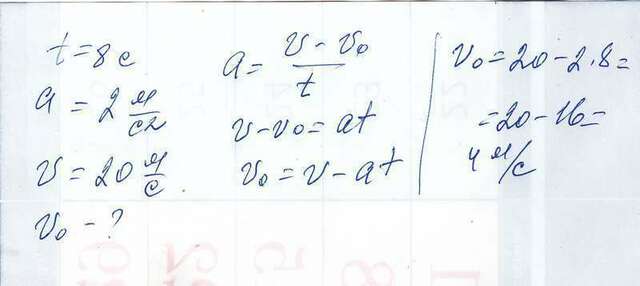 t = 8 с
a = 2 м/с2
v = 20 м/с
v₀ - ?
a = (v - v₀)/t
v - v₀ = at
v₀ = v - at
v₀ = 20 - 2.8 =
= 20 - 16 =
4 м/с